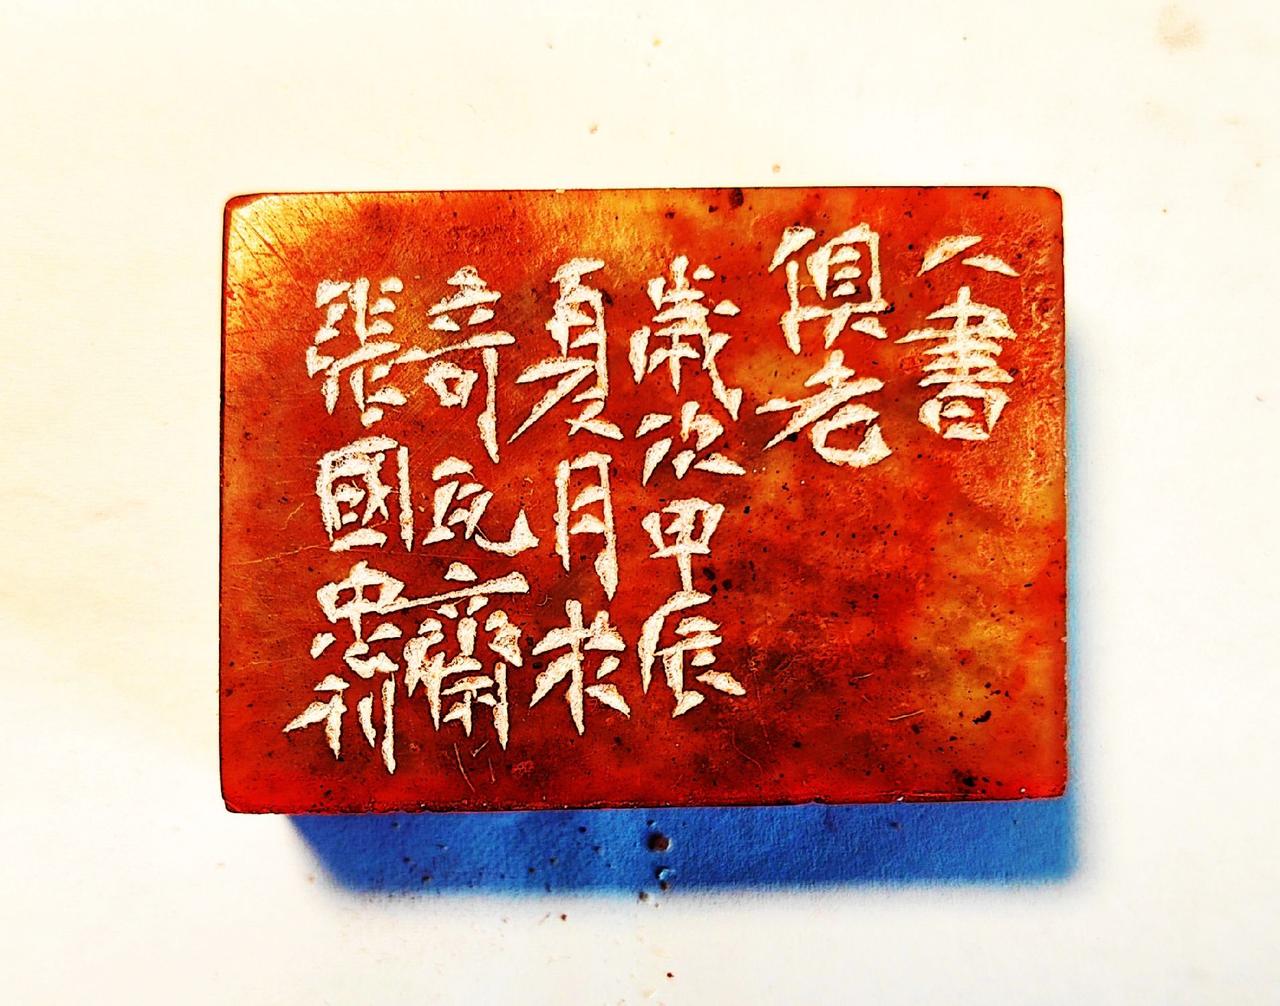 人書
俱老
歲次甲辰
夏月於
奇瓦齋
張國忠刊